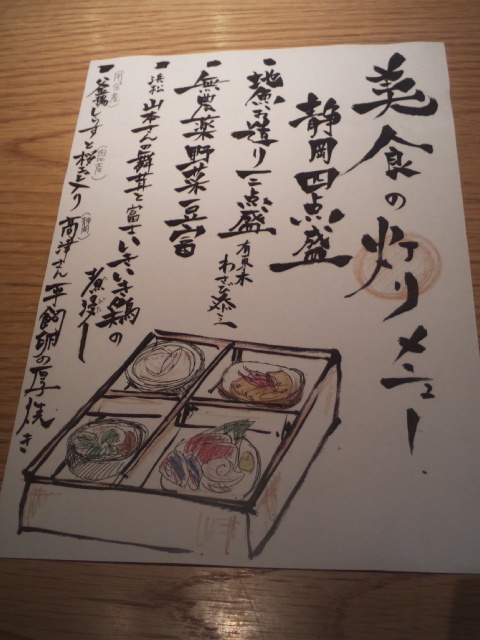 美食の灯りメニュー
静岡四点盛
一 地魚お造り三点盛 有東木わさび添え
一 無農薬野菜豆富
一 浜松 山本さんの舞茸と富士いきいき鶏の煮浸し
一 釜揚しらすと桜海老入り 高津さん平飼卵の厚焼き